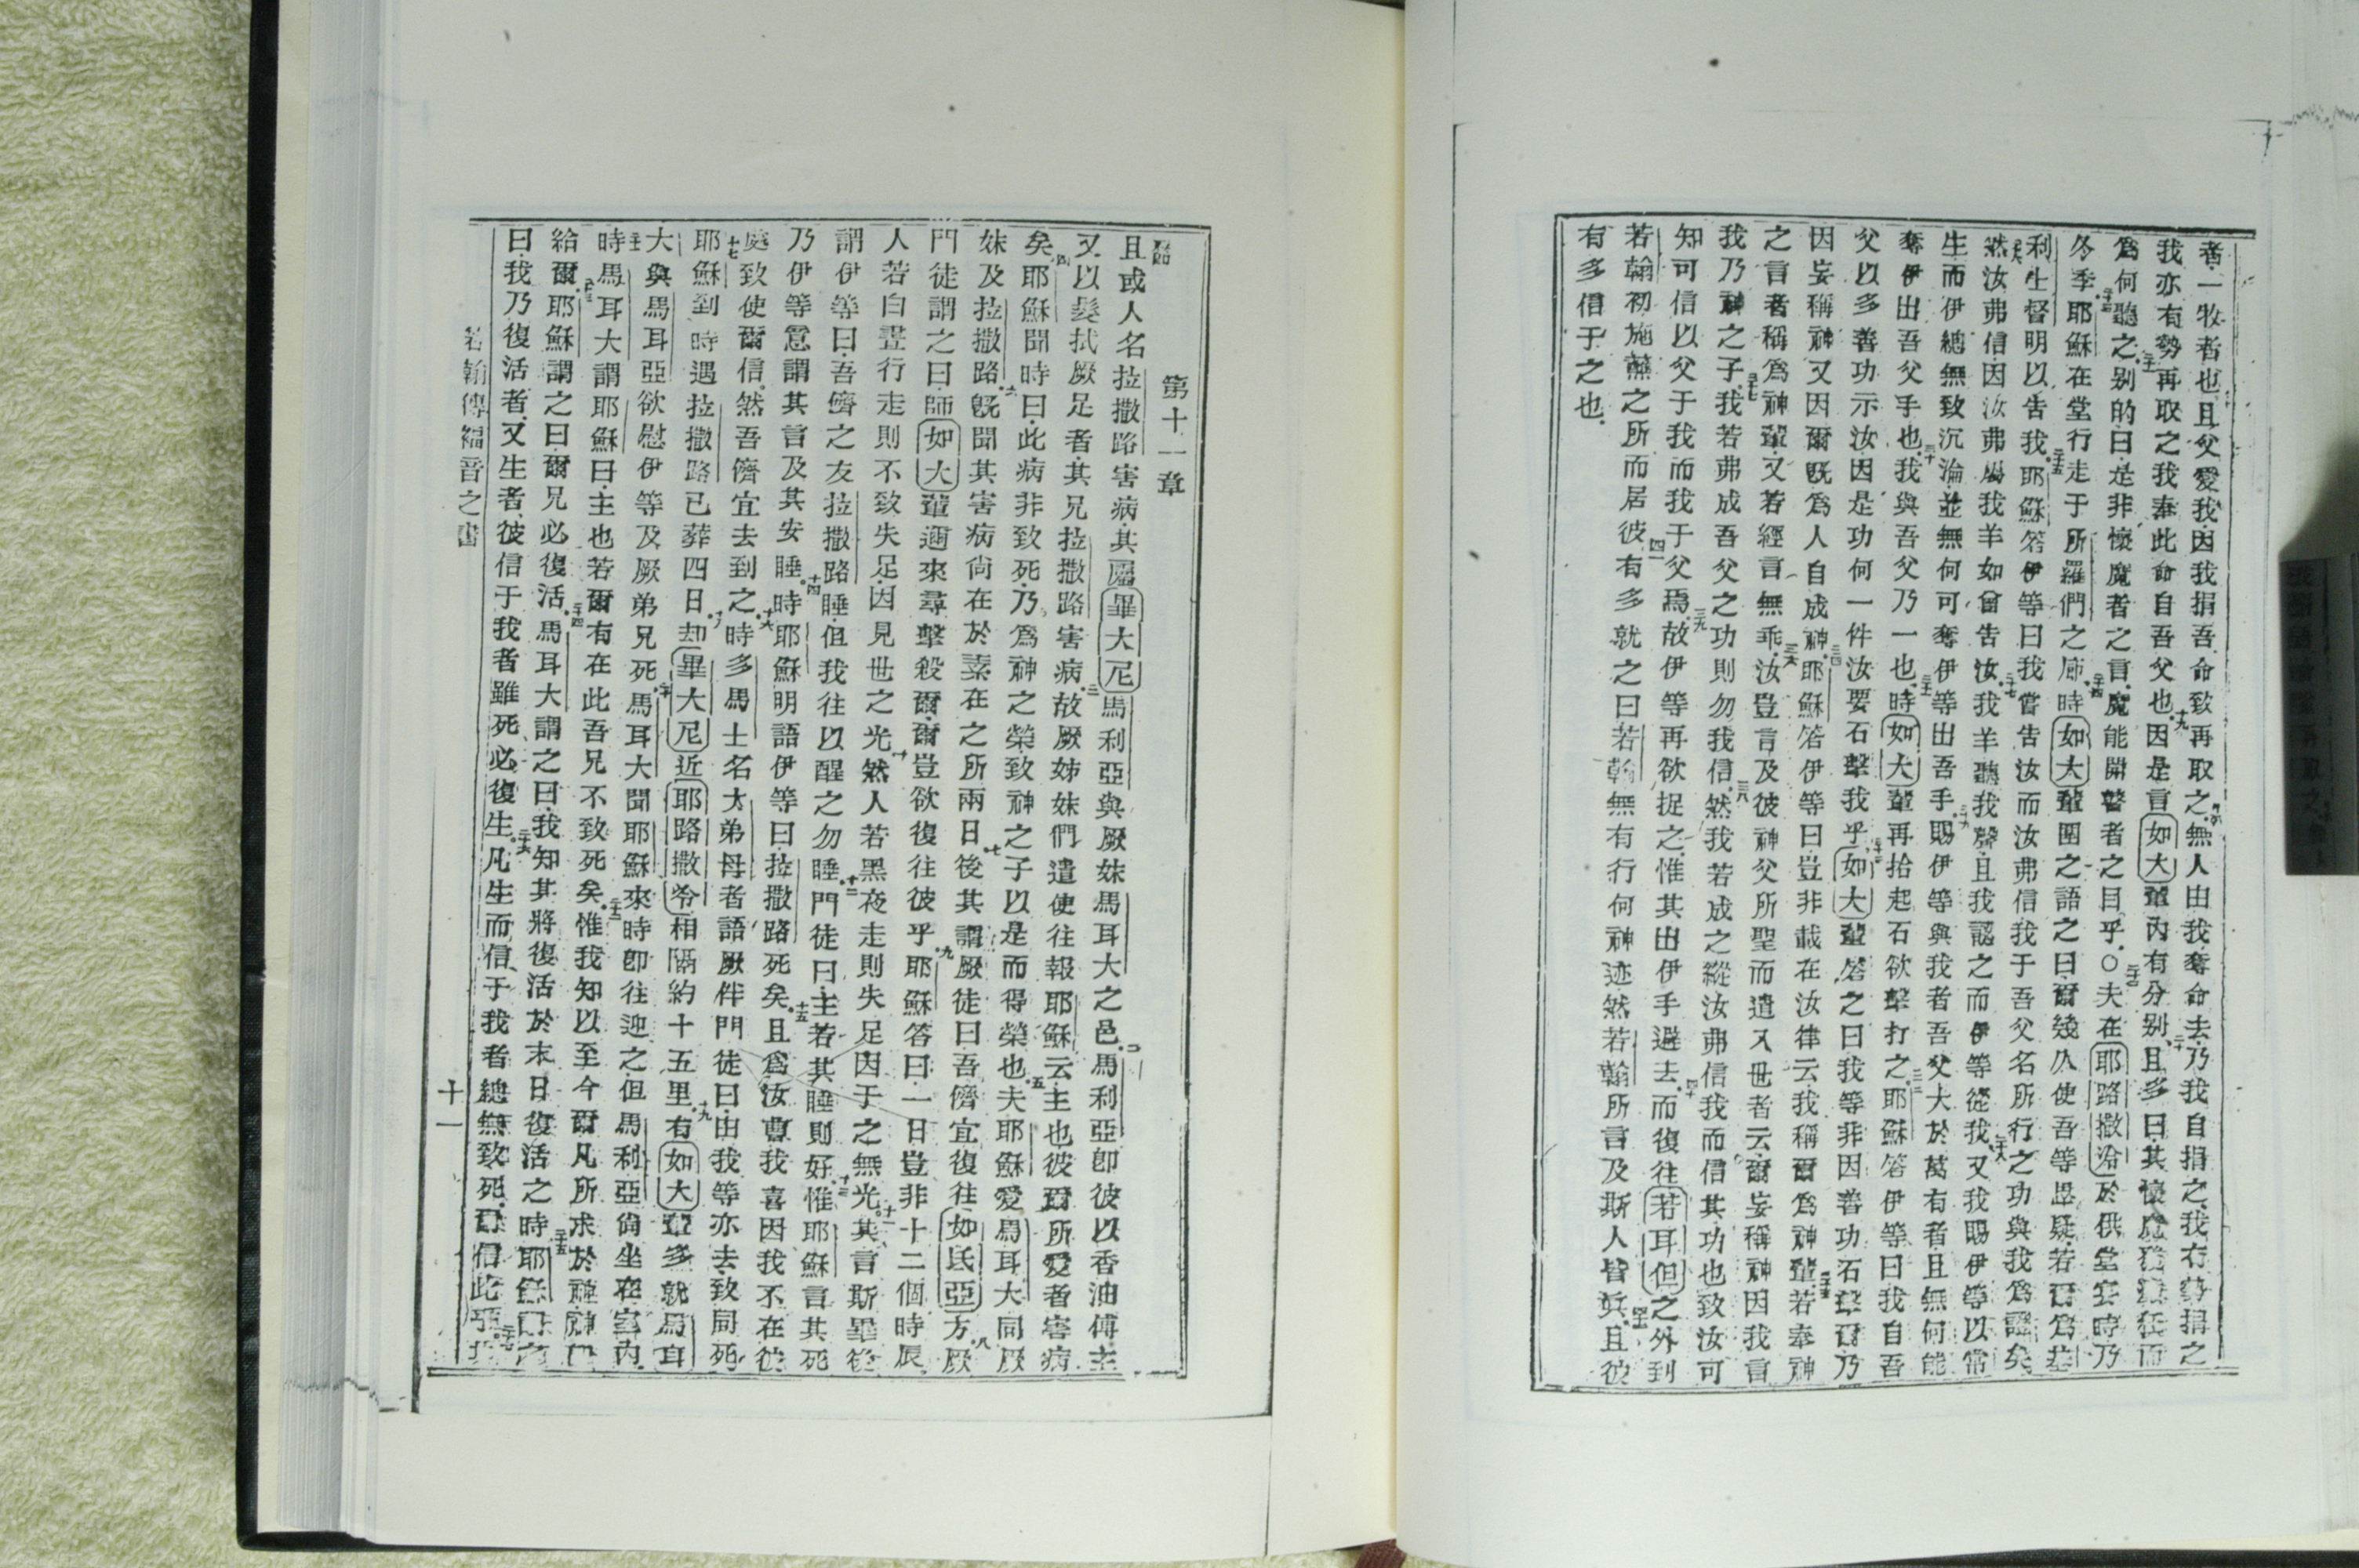 者一牧者也且父愛我因我捐吾命致再取之無人由我奪命去乃我自捐之我有勢捐之
我亦有勢再取之我奉此命自吾父也因是言如大輩內有分别且多曰其懷魔狂而
爲何聽之别的曰是非懷魔者之言魔能開瞽者之目乎○夫在耶路撒冷於供堂宴時乃
冬季耶穌在堂行走于所羅們之廊時如大輩圍之語之曰爾幾久使吾等思疑若爾爲基
利生督明以告我耶穌答伊等曰我嘗告汝而汝弗信我于吾父名所行之功與我爲證矣
然汝弗信因汝弗屬我羊如曾告汝我羊聽我聲且我認之而伊等從我又我賜伊等以常
生而伊總無致沉淪並無何可奪伊等出吾手賜伊等與我者吾父大於萬有者且無何能
奪伊出吾父手也我與吾父乃一也時如大輩再拾起石欲擊打之耶穌答伊等曰我自吾
父以多善功示汝因是功何一件汝要石擊我乎如大輩答之曰我等非因善功石擊爾乃
因妄稱神又因爾既爲人自成神耶穌答伊等曰豈非載在汝律云我稱爾爲神輩若奉神
之言者稱爲神輩又若經言無乖汝豈言及彼神父所聖而遣入世者云爾妄稱神因我言
我乃神之子我若弗成吾父之功則勿我信然我若成之縱汝弗信我而信其功也致汝可
知可信以父于我而我于父焉故伊等再欲捉之惟其出伊手過去而復往若耳但之外到
若翰初施蘸之所而居彼有多就之曰若翰無有行何神迹然若翰所言及斯人皆眞且彼
有多信于之也
第十一章
且或人名拉撒路害病其屬畢大尼馬利亞與厥妹馬耳大之邑馬利亞卽彼以香油傅主
又以髮拭厥足者其兄拉撒路害病故厥姊妹們遣使往報耶穌云主也彼爾所愛者害病
矣耶穌聞時曰此病非致死乃爲神之榮致神之子以是而得榮也夫耶穌愛馬耳大同厥
妹及拉撒路既聞其害病尙在於素在之所兩日後其謂厥徒曰吾儕宜復往如氐亞方厥
門徒謂之曰師如大輩邇來尋擊殺爾爾豈欲復往彼乎耶穌答曰一日豈非十二個時辰
人若白晝行走則不致失足因見世之光然人若黑夜走則失足因于之無光其言斯畢後
謂伊等曰吾儕之友拉撒路睡但我往以醒之勿睡門徒曰主若其睡則好惟耶穌言其死
乃伊等意謂其言及其安睡時耶穌明語伊等曰拉撒路死矣且爲汝曹我喜因我不在彼
處致使爾信然吾儕宜去到之時多馬士名大弟母者語厥伴門徒曰由我等亦去致同死
耶穌到時遇拉撒路已葬四日却畢大尼近耶路撒冷相隔約十五里有如大輩多就馬耳
大與馬耳亞欲慰伊等及厥弟兄死馬耳大聞耶穌來時卽往迎之但馬利亞尙坐在室內
時馬耳大謂耶穌曰主也若爾有在此吾兄不致死矣惟我知以至今爾凡所求於神神必
給爾耶穌謂之曰爾兄必復活馬耳大謂之曰我知其將復活於末日復活之時耶穌謂之
曰我乃復活者又生者彼信于我者雖死必復生凡生而信于我者總無致死爾信此
若翰傳福音之書
十一